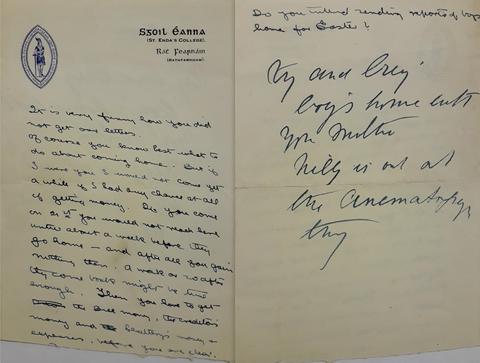 Sgoil Éanna
(ST. ENDA'S COLLEGE),
Rát Fearnáin
(RATHFARNHAM).
It is very funny how you did
not get our letters.
Of course you know best what to
do about coming home. But if
I were you I would not come yet
a while if I had any chance at all
of getting money. If you come
on 21st you would not reach here
until about a week before they
go home — and after all you gain
nothing then. A week or so after
they come back might be time
enough. Then you have to get
the Bell money, the creditors
money and Bradley's money &
expenses, before you are clear.
Do you intend sending reports of boys
home for Easter?
Try and bring
boy's home with
you Mother
Nelly is out at
the cinematograph
thing